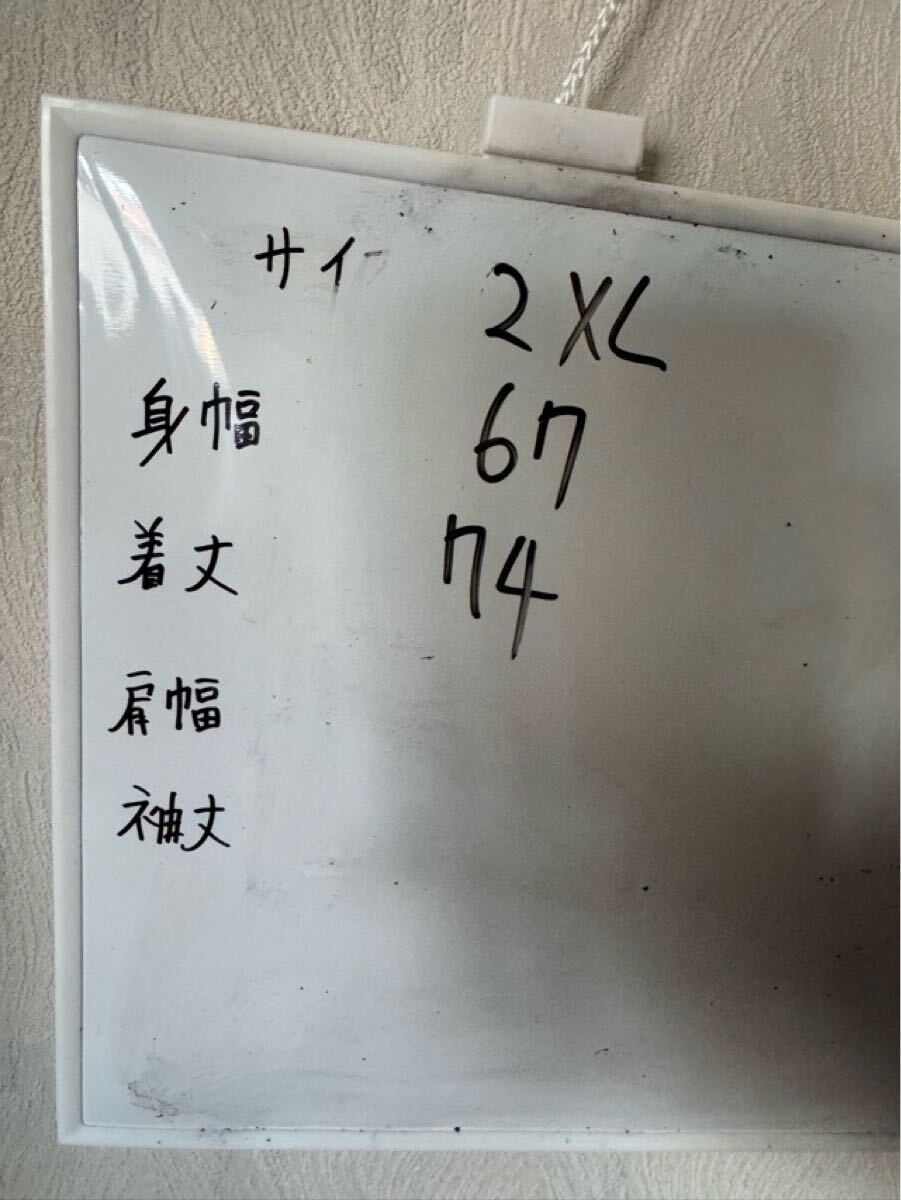 サイ 2XL
身幅 67
着丈 74
肩幅
袖丈